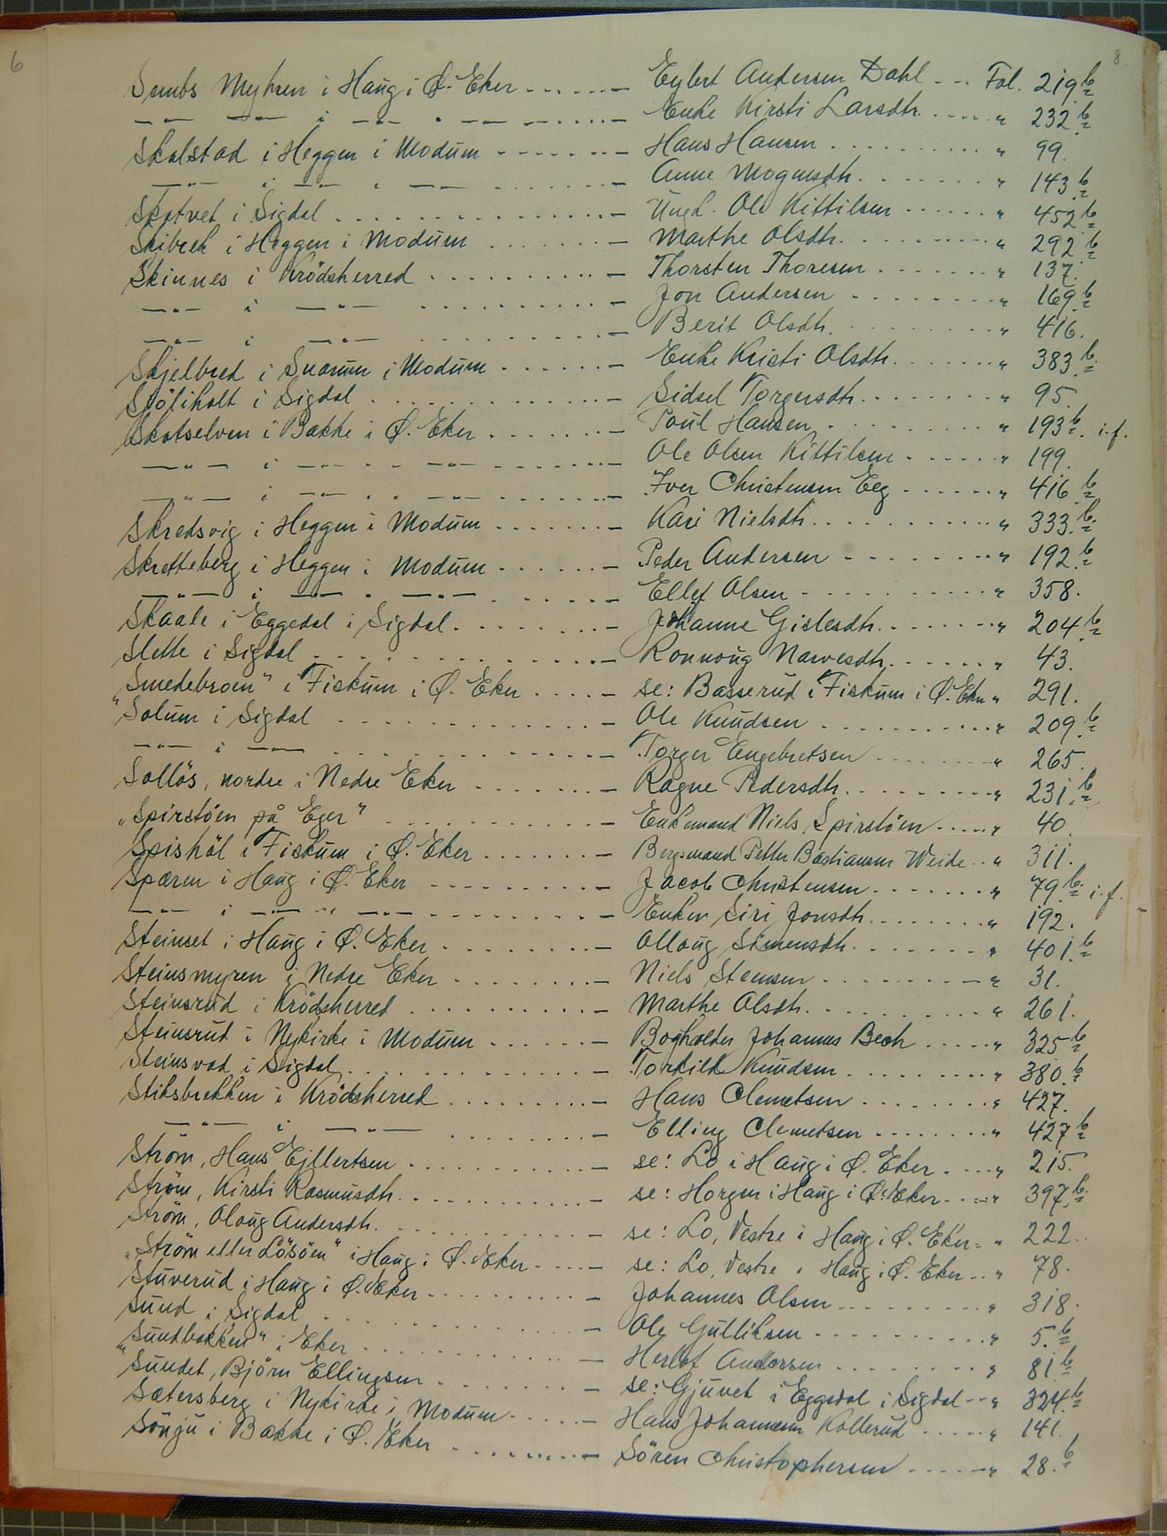 6
8
Smibs Myhren i Haug i Ø. Eker - - - - - - Eylert Andersen Dahl - - - Fol. 219.b
— " — — " — i — " — " — " — - - - - - - Enke Kirsti Larsdtr. - - - - " 232.b
Skalstad i Heggen i Modum - - - - - - Hans Hansen - - - - - - " 99.
— " — i — " — i — " — - - - - - - Anne Mogensdtr. - - - - - - " 143.b
Skatvet i Sigdal - - - - - - Ungk. Ole Kittilsen - - - - - - " 452.b
Skibrek i Heggen i Modum - - - - - - Marthe Olsdtr. - - - - - - " 292.b
Skinnes i Krödsherred - - - - - - Thorsten Thoresen - - - - - - " 137.
— " — i — " — - - - - - - Jon Andersen - - - - - - " 169.b
— " — i — " — - - - - - - Berit Olsdtr. - - - - - - " 416.
Skjelbred i Snarum i Modum - - - - - - Enke Kristi Olsdtr. - - - - - - " 383.b
i Sigdal - - - - - - Sidsel Torgersdtr. - - - - - - " 95.
Skotselven i Bakke i Ø. Eker - - - - - - Poul Hansen - - - - - - " 193.b i.f.
— " — i — " — " — " — - - - - - - Ole Olsen Kittilsen - - - - - - " 199.
— " — i — " — " — " — - - - - - - Iver Christensen Eeg - - - - - - " 416.b
Skredsvig i Heggen i Modum - - - - - - Kari Nielsdtr. - - - - - - " 333.b
Skretteberg i Heggen i Modum - - - - - - Peder Andersen - - - - - - " 192.b
— " — i — " — " — " — - - - - - - Ellef Olsen - - - - - - " 358.
Skaale i Eggedal i Sigdal - - - - - - Johanne Gislesdtr. - - - - - - " 204.b
Slette i Sigdal - - - - - - Ronnoug Narvesdtr. - - - - - - " 43.
"Smedebroen" i Fiskum i Ø. Eker - - - - - - se: Basserud i Fiskum i Ø. Eker " 291.
Solum i Sigdal - - - - - - Ole Knudsen - - - - - - " 209.b
— " — i — " — - - - - - - Torger Engebretsen - - - - - - " 265.
Sollös, nordre i Nedre Eker - - - - - - Ragne Pedersdtr. - - - - - - " 231.b
"Spirstöen på Eger" - - - - - - Enkemand Niels Spirstöen - - - - - " 40.
Spishöl i Fiskum i Ø. Eker - - - - - - Bergsmand Petter Bastiansen Weide - - " 311.
Spæren i Haug i Ø. Eker - - - - - - Jacob Christensen - - - - - - " 79.b i.f.
— " — i — " — i — " — - - - - - - Enken Siri Jonsdtr. - - - - - - " 192.
Steinset i Haug i Ø. Eker - - - - - - Olloug Simensdtr. - - - - - - " 401.b
Steinsmyren i Nedre Eker - - - - - - Niels Stensen - - - - - - " 31.
Steinsrud i Krödsherred - - - - - - Marthe Olsdtr. - - - - - - " 261.
Steinsrud i Nykirke i Modum - - - - - - Bogholder Johannes Bech - - - - - " 325.b
Steinsvad i Sigdal - - - - - - Torkild Knudsen - - - - - - " 380.b
Stiksbrekken i Krödsherred - - - - - - Hans Clemetsen - - - - - - " 427.
— " — i — " — - - - - - - Elling Clemetsen - - - - - - " 427.b
Ström, Hans Ejllertsen - - - - - - se: Lo i Haug i Ø. Eker - - - - " 215.
Ström, Kirsti Rasmusdtr. - - - - - - se: Horgen i Haug i Ø. Eker - - - - " 397.b
Ström, Oloug Andersdtr. - - - - - - se: Lo, Vestre i Haug i Ø. Eker - " 222.
"Ström eller Lösöen" i Haug i Ø. Eker - - - - - se: Lo, Vestre i Haug i Ø. Eker - - " 78.
Stuverud i Haug i Ø. Eker - - - - - - Johannes Olsen - - - - - - " 318.
Sund i Sigdal - - - - - - Ole Gulliksen - - - - - - " 5.b
"Sundbakken" i Eker - - - - - - Herlof Andersen - - - - - - " 81.b
Sundet, Björn Ellingsen - - - - - - se: Gjuvet i Eggedal i Sigdal - - " 324.b
Sætersberg i Nykirke i Modum - - - - - - Hans Johannesen Kollerud - - - - - " 141.
Sönju i Bakke i Ø. Eker - - - - - - Sören Christophersen - - - - - - " 28.b